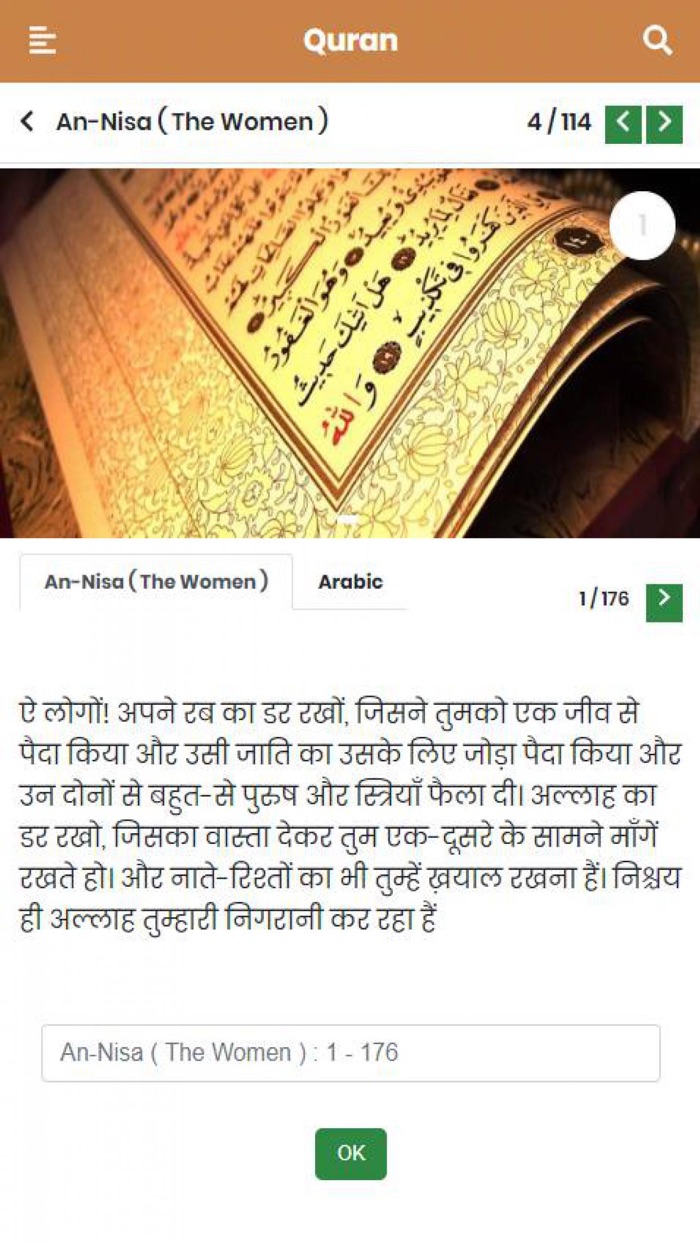 Quran
An-Nisa ( The Women )
4 / 114
1
وَهُوَ الْغَفُورُ
هَلْ أَتَىٰكَ حَدِيثُ
كَفَرُوا فِي تَكْذِيبٍ
وَاللَّهُ
An-Nisa ( The Women )
Arabic
1 / 176
ऐ लोगों! अपने रब का डर रखों, जिसने तुमको एक जीव से
पैदा किया और उसी जाति का उसके लिए जोड़ा पैदा किया और
उन दोनों से बहुत-से पुरुष और स्त्रियाँ फैला दी। अल्लाह का
डर रखो, जिसका वास्ता देकर तुम एक-दूसरे के सामने माँगें
रखते हो। और नाते-रिश्तों का भी तुम्हें ख़याल रखना हैं। निश्चय
ही अल्लाह तुम्हारी निगरानी कर रहा हैं
An-Nisa ( The Women ) : 1 - 176
OK